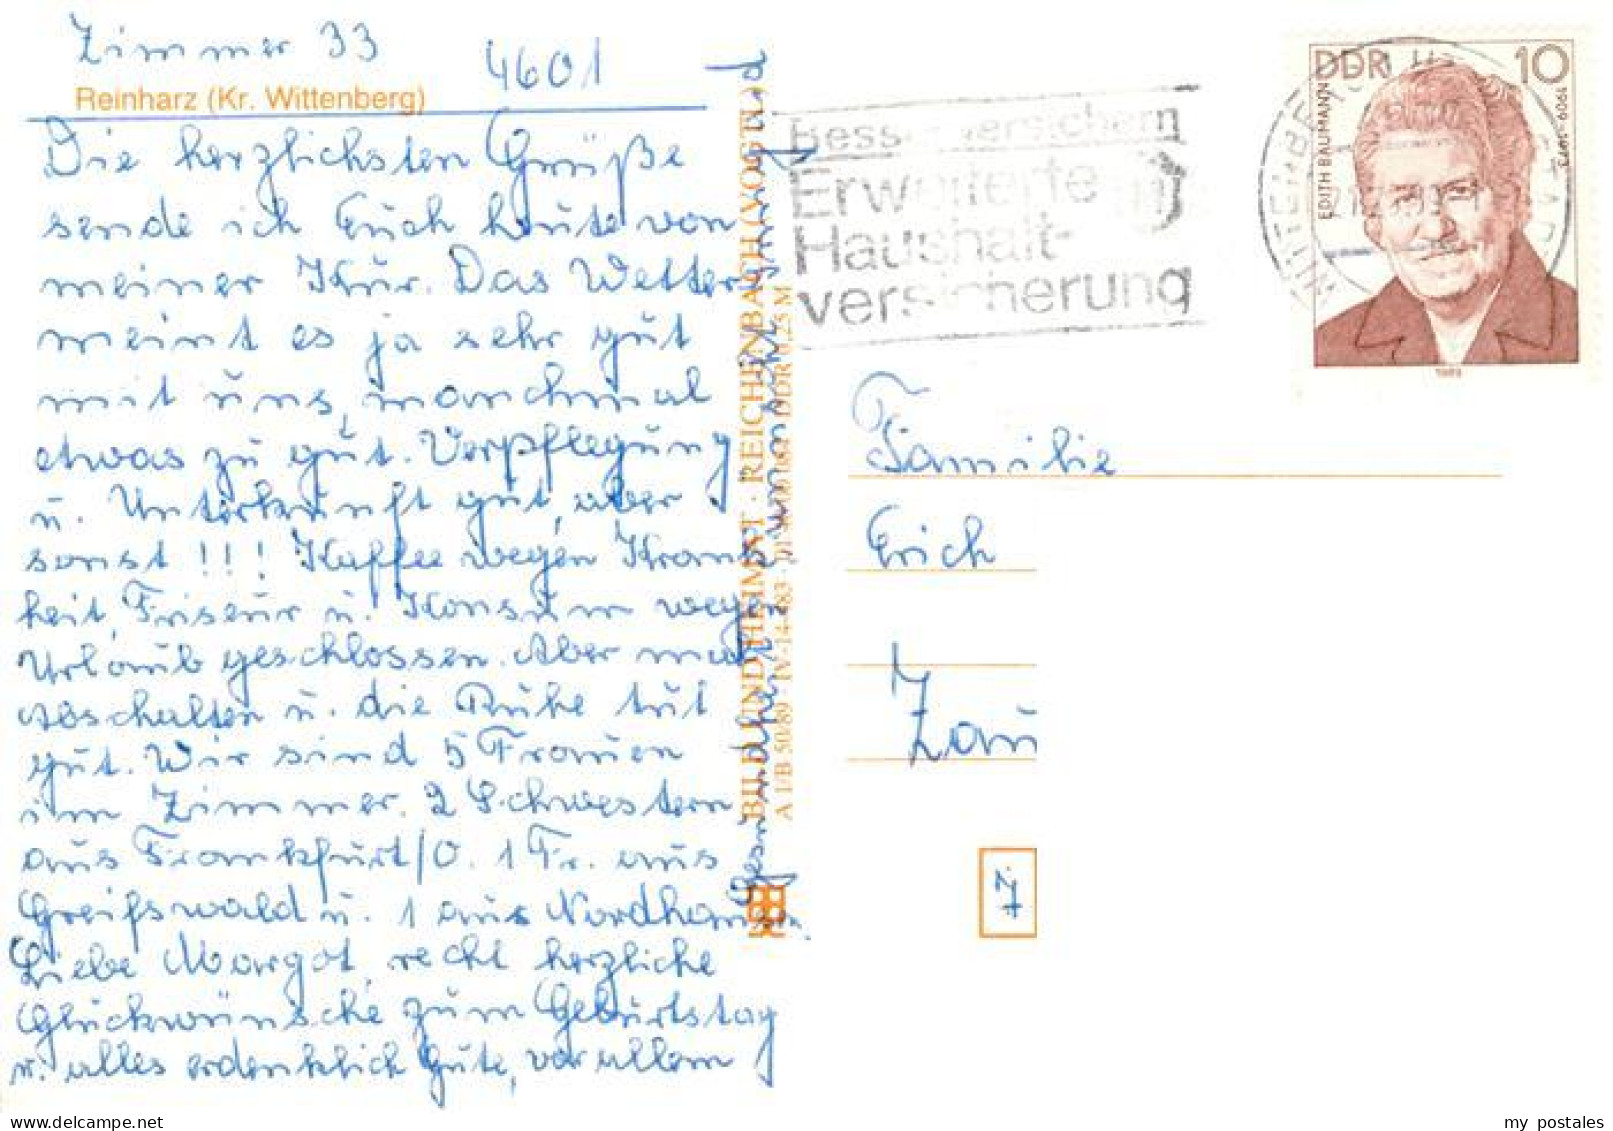 Zimmer 33
4601
Reinharz (Kr. Wittenberg)
Die herzlichsten Grüße
sende ich Euch heute von
meiner Kur. Das Wetter
meint es ja sehr gut
mit uns, manchmal
etwas zu gut. Verpflegung
u. Unterkunft gut, aber
sonst !!! Kaffee wegen Krank
heit, Friseur u. Konsum wegen
Urlaub geschlossen. Aber mal
Abschalten u. die Ruhe tut
gut. Wir sind 5 Frauen
im Zimmer. 2 Schwestern
aus Frankfurt/O. 1 Fr. aus
Greifswald u. 1 aus Nordhausen.
Liebe Margot, recht herzliche
Glückwünsche zum Geburtstag
u. alles erdenklich Gute, vor allem
Gesundheit wünscht
BILD UND HEIMAT · REICHENBACH (VOGTLAND)
A 1/B 50/89 · IV-14-483 DDR 0,25 M
Besser versichern
Erweiterte
Haushalt-
versicherung
WITTENBERG LUTHERSTADT
DDR 10
EDITH BAUMANN
1909-1973
1989
Familie
Erich
Zau
7
my postales
www.delcampe.net